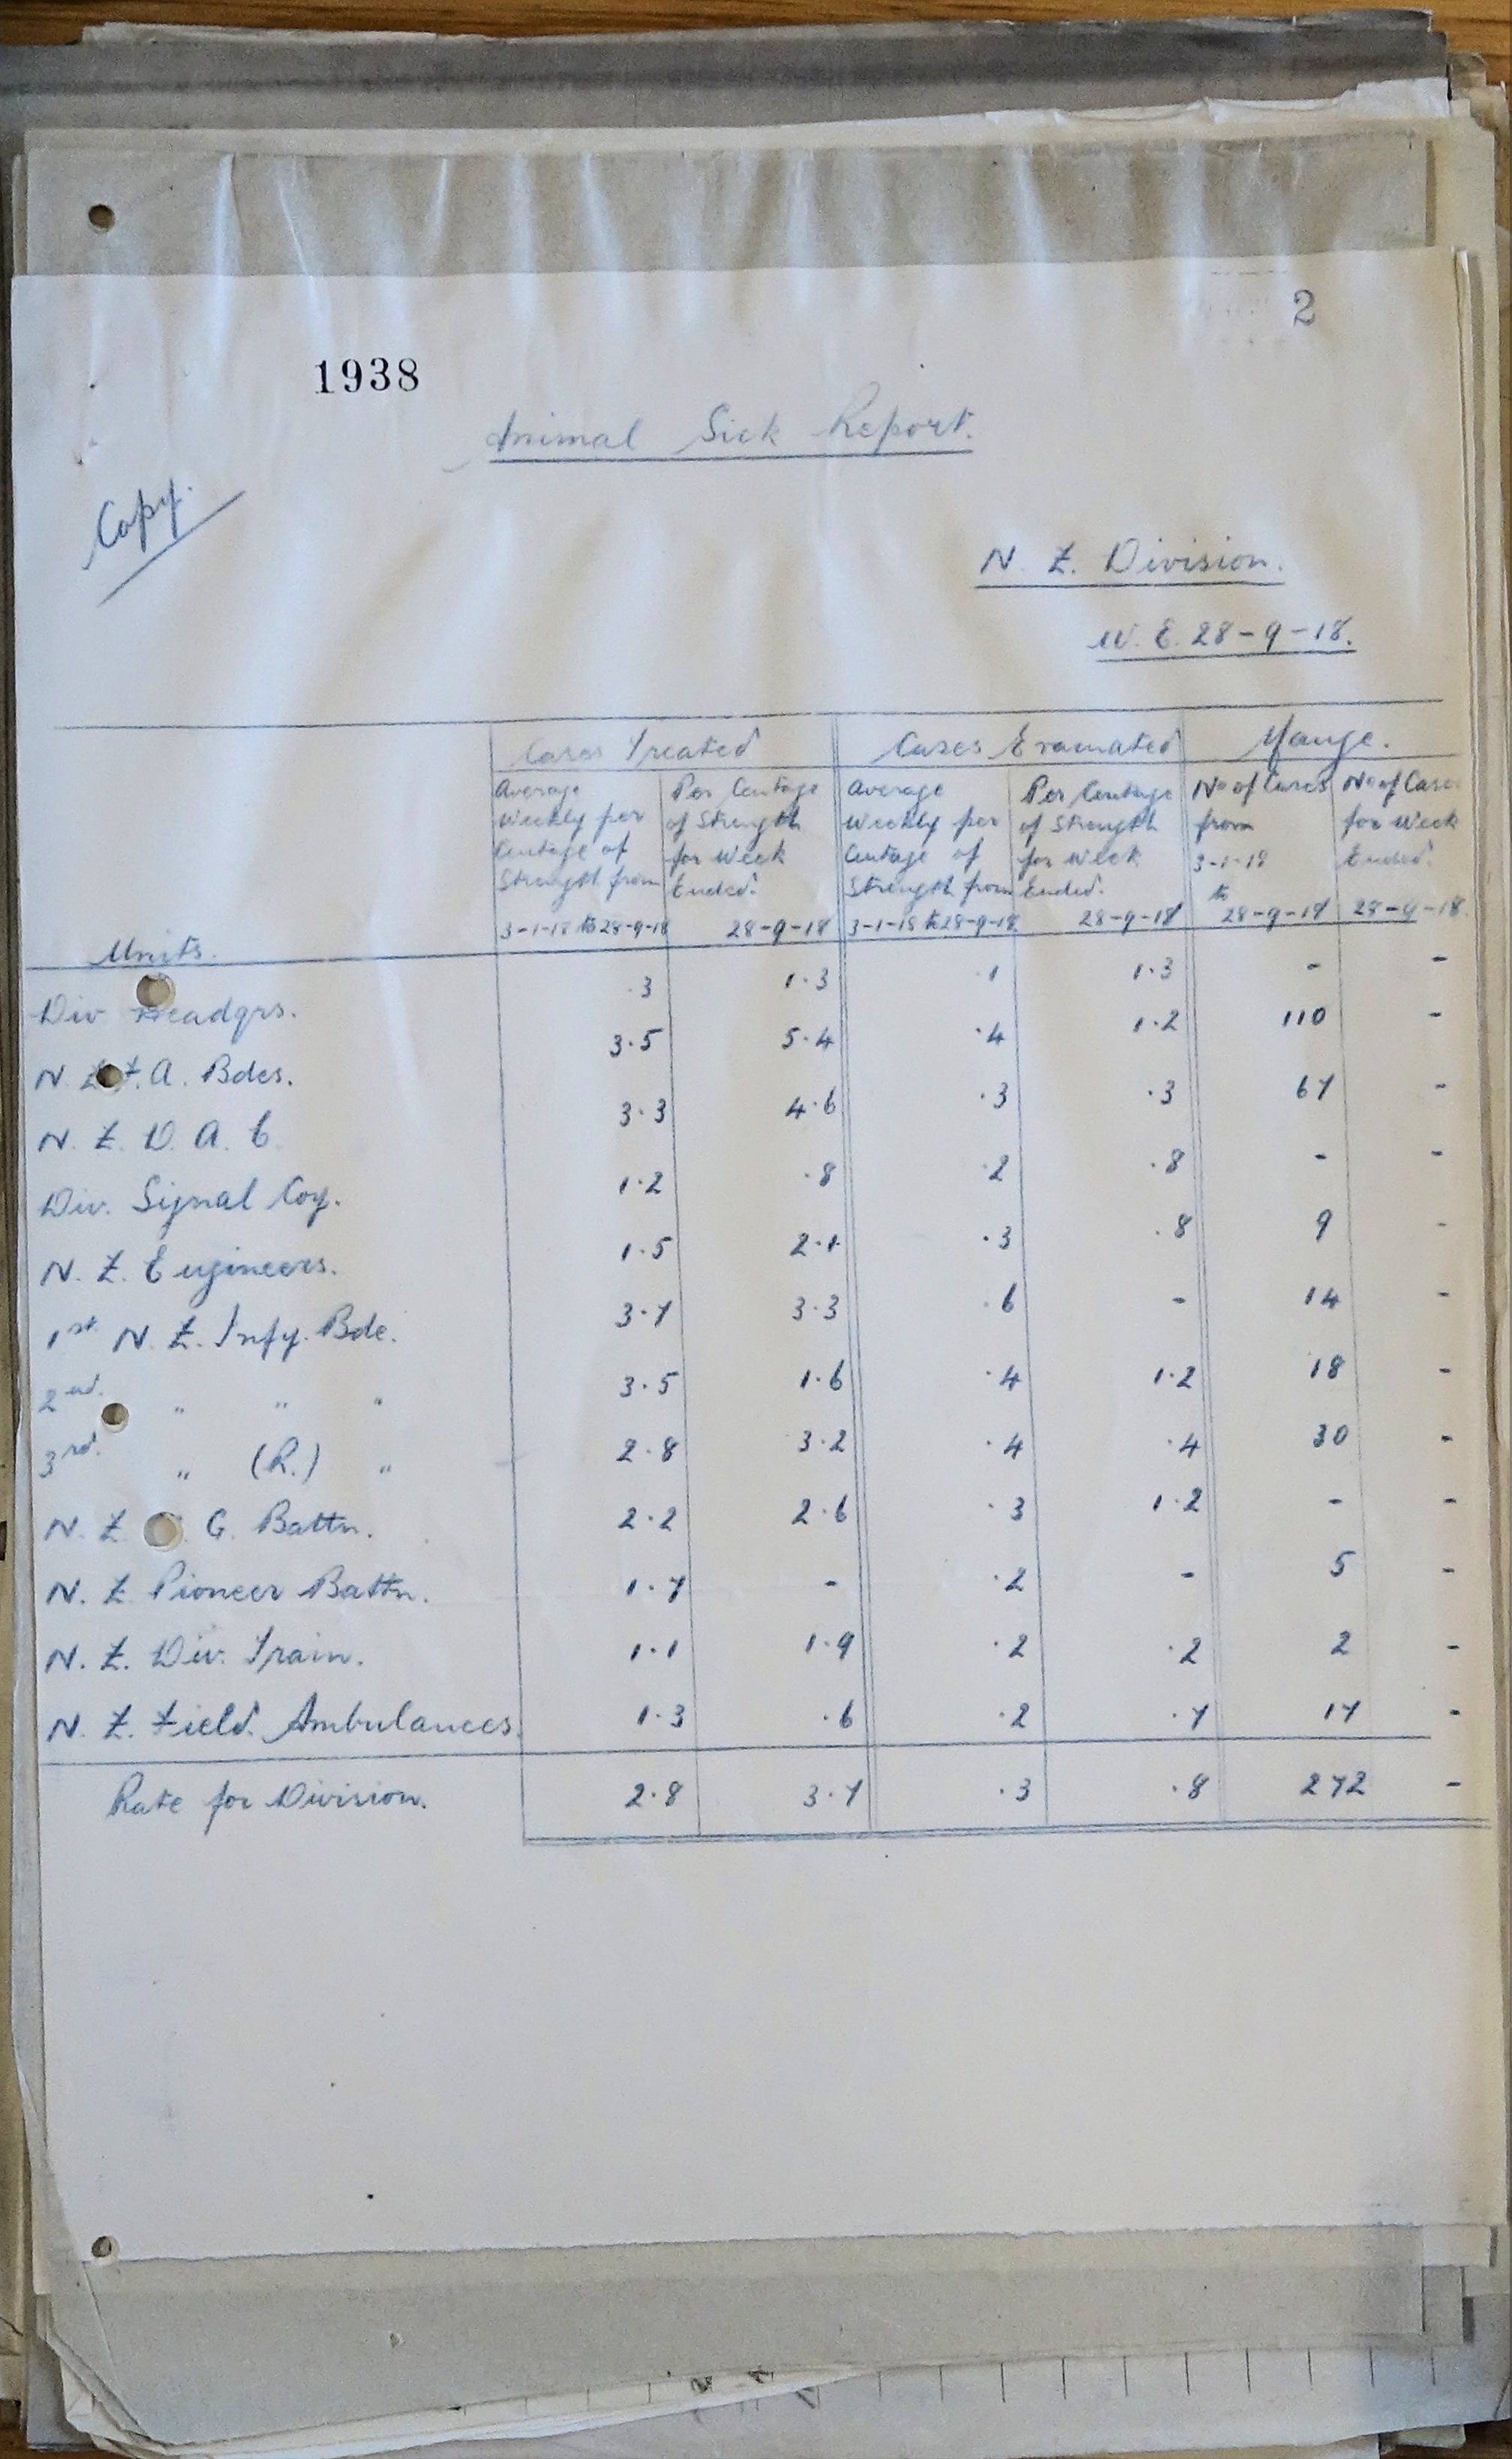 2
1938
Animal Sick Report.
Copy.
N. Z. Division.
W. E. 28-9-18.
Cases Treated Cases Evacuated Mange.
Units. Average Weekly per Centage of Strength from 3-1-18 to 28-9-18 Per Centage of Strength for Week Ended. 28-9-18 Average Weekly per Centage of Strength from 3-1-18 to 28-9-18 Per Centage of Strength for Week Ended. 28-9-18 No of Cases from 3-1-18 to 28-9-18 No of Cases for Week Ended. 28-9-18.
Div Headqrs. .3 1.3 .1 1.3 - -
N. Z. F. A. Bdes. 3.5 5.4 .4 1.2 110 -
N. Z. D. A. C. 3.3 4.6 .3 .3 67 -
Div. Signal Coy. 1.2 .8 .2 .8 - -
N. Z. Engineers. 1.5 2.1 .3 .8 9 -
1st N. Z. Infy. Bde. 3.7 3.3 .6 - 14 -
2nd. " " " 3.5 1.6 .4 1.2 18 -
3rd. " (R.) " 2.8 3.2 .4 .4 30 -
N. Z. G. Battn. 2.2 2.6 .3 1.2 - -
N. Z. Pioneer Battn. 1.7 - .2 - 5 -
N. Z. Div. Train. 1.1 1.9 .2 .2 2 -
N. Z. Field. Ambulances. 1.3 .6 .2 .7 17 -
Rate for Division. 2.8 3.7 .3 .8 272 -